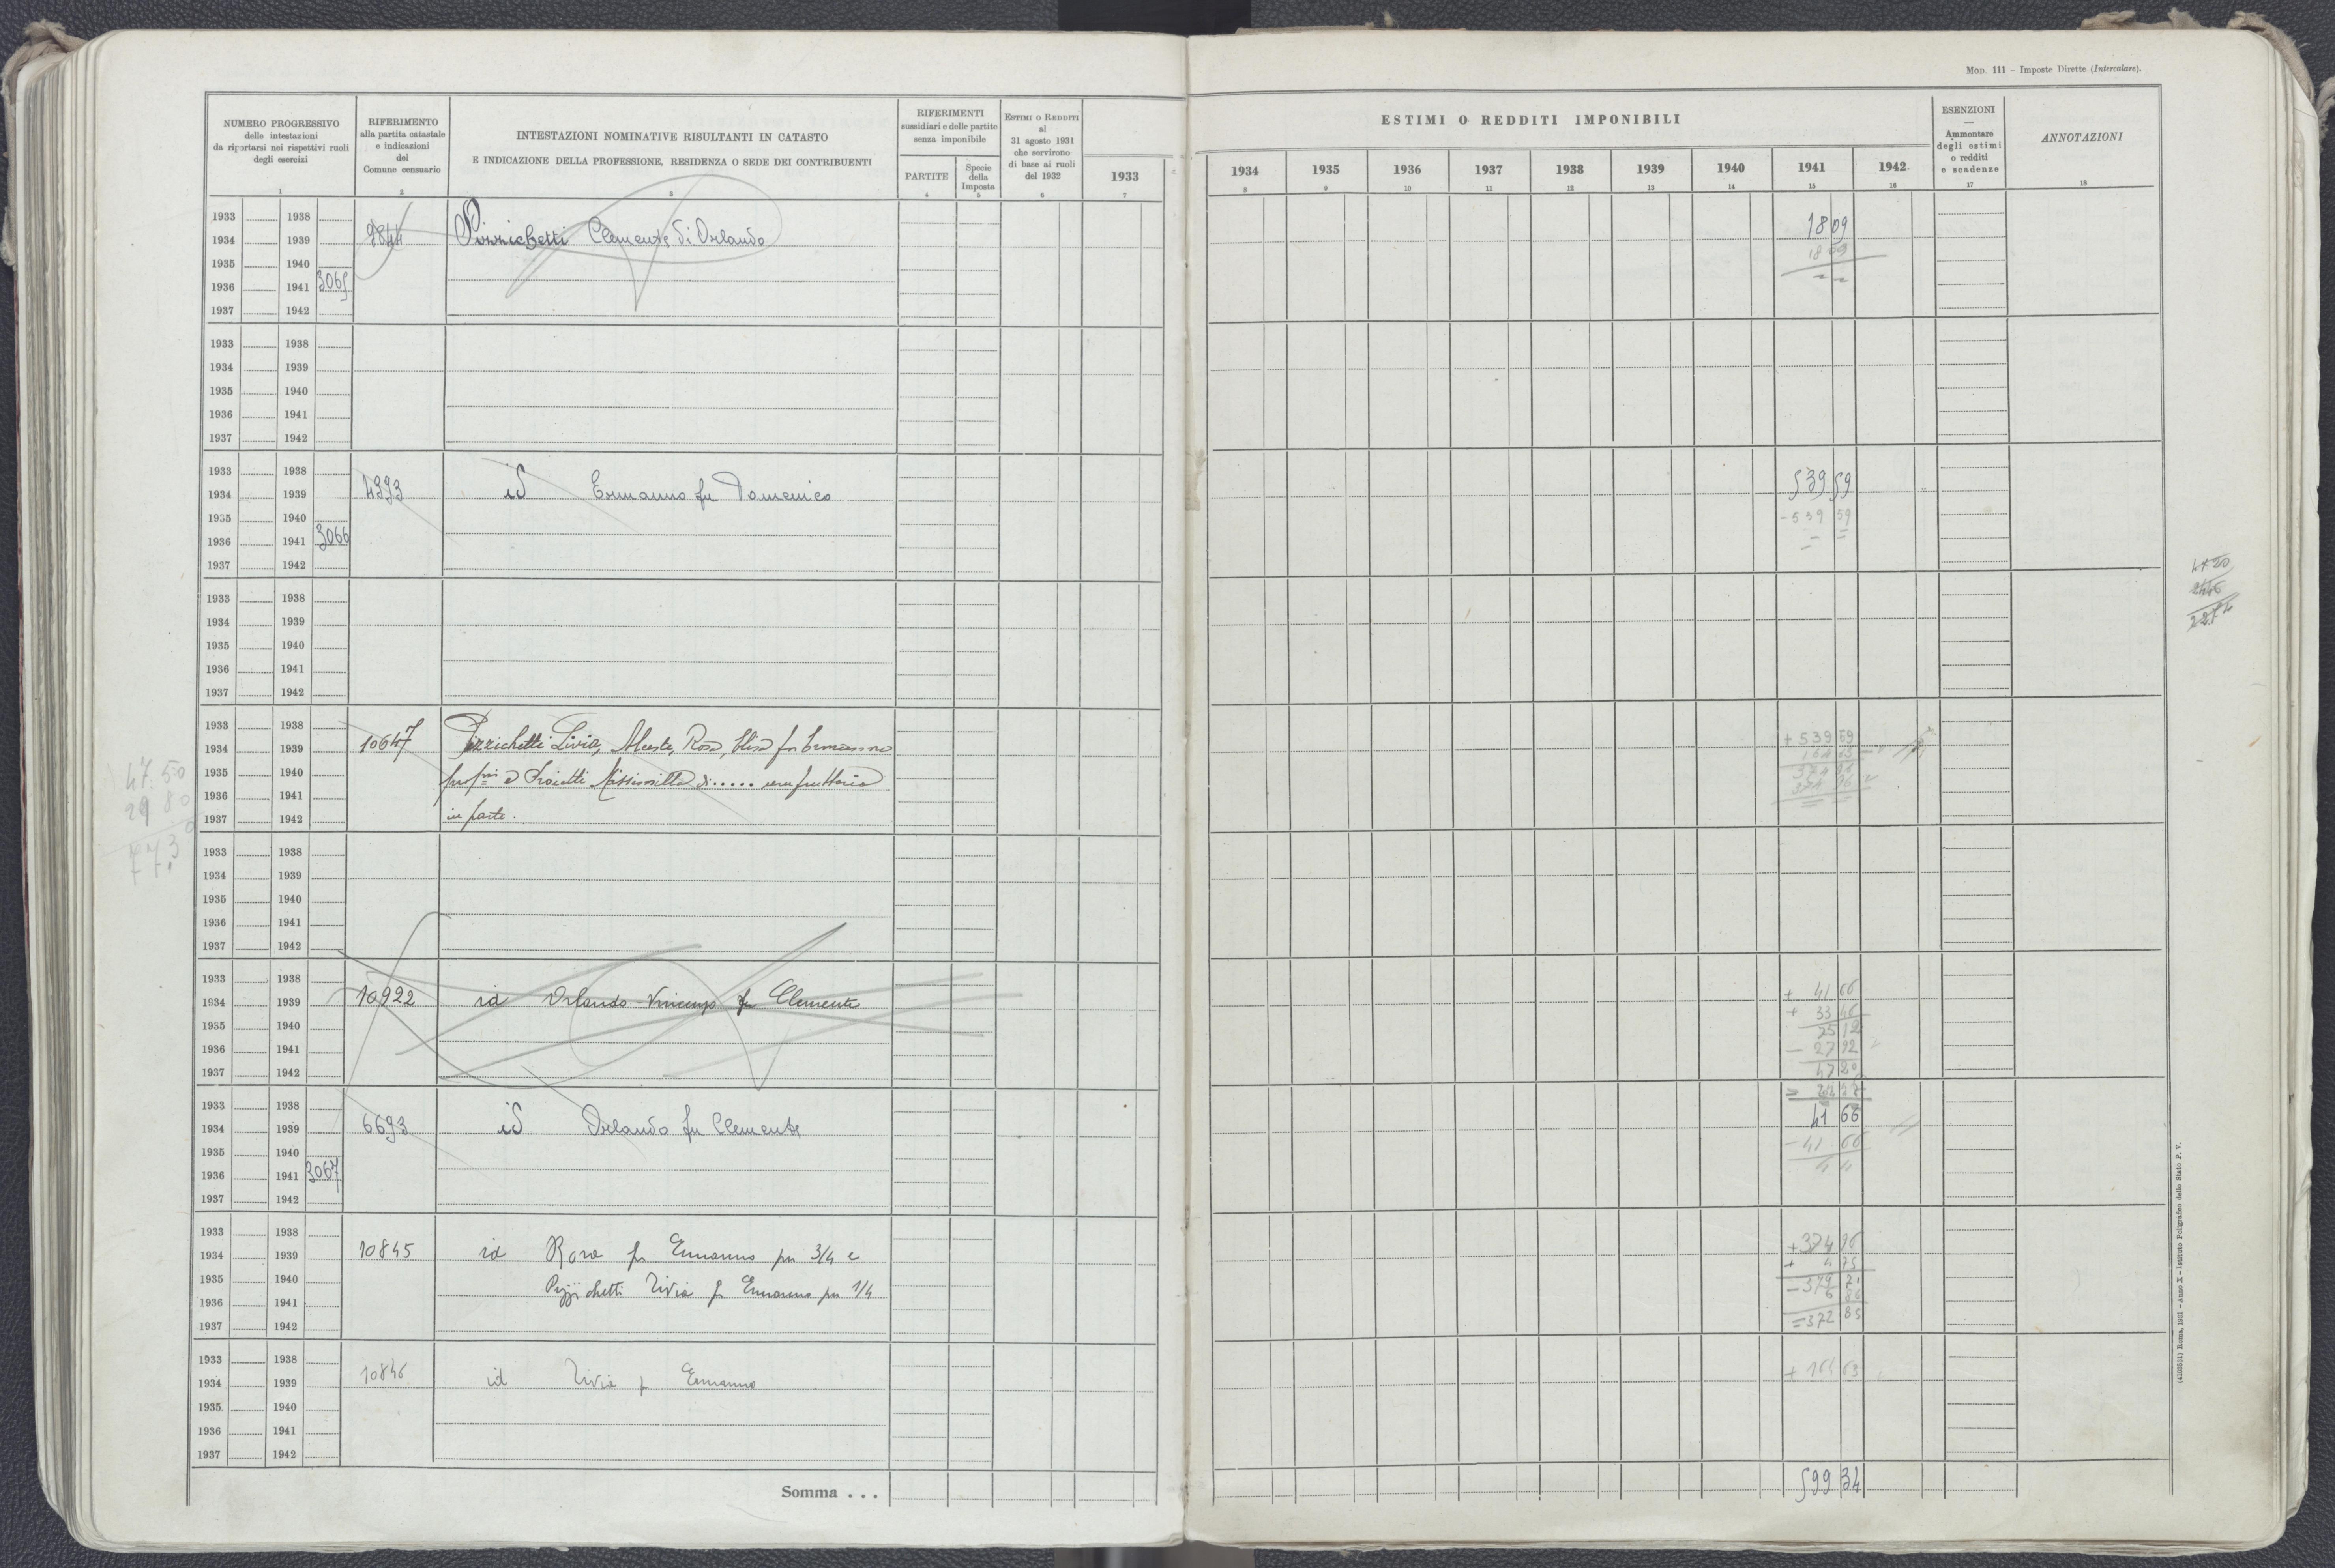 MOD. 111 – Imposte Dirette (Intercalare).
NUMERO PROGRESSIVO
delle intestazioni
da riportarsi nei rispettivi ruoli
degli esercizi
1
RIFERIMENTO
alla partita catastale
e indicazioni
del
Comune censuario
2
INTESTAZIONI NOMINATIVE RISULTANTI IN CATASTO
E INDICAZIONE DELLA PROFESSIONE, RESIDENZA O SEDE DEI CONTRIBUENTI
3
RIFERIMENTI
sussidiari e delle partite
senza imponibile
PARTITE
4
Specie
della
Imposta
5
ESTIMI O REDDITI
al
31 agosto 1931
che servirono
di base ai ruoli
del 1932
6
1933
7
ESTIMI O REDDITI IMPONIBILI
1934 1935 1936 1937 1938 1939 1940 1941 1942
8 9 10 11 12 13 14 15 16
ESENZIONI
—
Ammontare
degli estimi
o redditi
e scadenze
17
ANNOTAZIONI
18
1933 1938
1934 1939 9844 Pizzichetti Clemente di Orlando 18 09
1935 1940 18 09
1936 1941 3065
1937 1942
1933 1938
1934 1939
1935 1940
1936 1941
1937 1942
1933 1938
1934 1939 4393 id Ermanno fu Domenico 539 59
1935 1940 - 539 59
1936 1941 3066
1937 1942
1933 1938
1934 1939
1935 1940
1936 1941
1937 1942
1933 1938
1934 1939 10647 Pizzichetti Livia, Alceste, Rosa, Elisa fu + 539 59
1935 1940 e Proietti
1936 1941
1937 1942 in parte.
47.50
29 80
77.3
1933 1938
1934 1939
1935 1940
1936 1941
1937 1942
1933 1938 + 41 66
1934 1939 10922 id Orlando Vincenzo fu Clemente + 33 46
1935 1940 75 12
1936 1941 — 27 92
1937 1942 47 20
1933 1938
1934 1939 6693 id Orlando fu Clemente 41 66
1935 1940 - 41 66
1936 1941 3067
1937 1942
1933 1938
1934 1939 10845 id Rosa fu Ermanno per 3/4 e + 374 96
1935 1940 + 4 75
1936 1941 Pizzichetti Livia fu Ermanno per 1/4 379 71
— 6 86
1937 1942 = 372 85
1933 1938
1934 1939 10846 id Livia fu Ermanno + 164 63
1935 1940
1936 1941
1937 1942
Somma . . . 599 34
(4100531) Roma, 1931 – Anno X – Istituto Poligrafico dello Stato P. V.